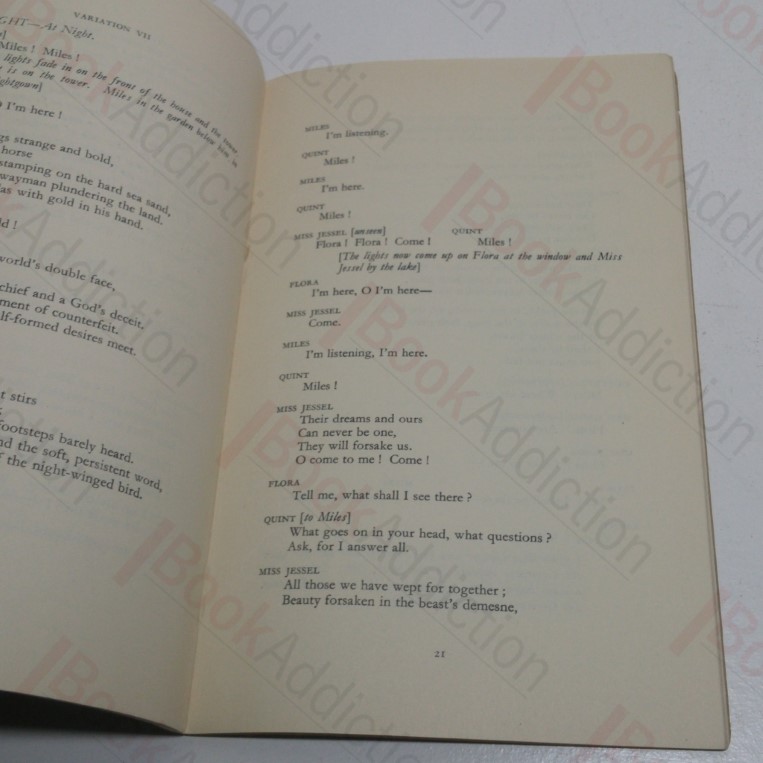 VARIATION VII
GHT—At Night.
Miles ! Miles !
lights fade in on the front of the house and the tower.
is on the tower. Miles in the garden below him in
ightgown]
I'm here !
gs strange and bold,
horse
stamping on the hard sea sand,
wayman plundering the land.
das with gold in his hand.
ld !
world's double face,
chief and a God's deceit.
ment of counterfeit.
lf-formed desires meet.
t stirs
footsteps barely heard.
nd the soft, persistent word,
f the night-winged bird.
MILES
I'm listening.
QUINT
Miles !
MILES
I'm here.
QUINT
Miles !
MISS JESSEL [unseen] QUINT
Flora ! Flora ! Come ! Miles !
[The lights now come up on Flora at the window and Miss
Jessel by the lake]
FLORA
I'm here, O I'm here—
MISS JESSEL
Come.
MILES
I'm listening, I'm here.
QUINT
Miles !
MISS JESSEL
Their dreams and ours
Can never be one,
They will forsake us.
O come to me ! Come !
FLORA
Tell me, what shall I see there ?
QUINT [to Miles]
What goes on in your head, what questions ?
Ask, for I answer all.
MISS JESSEL
All those we have wept for together ;
Beauty forsaken in the beast's demesne,
21
BookAddiction